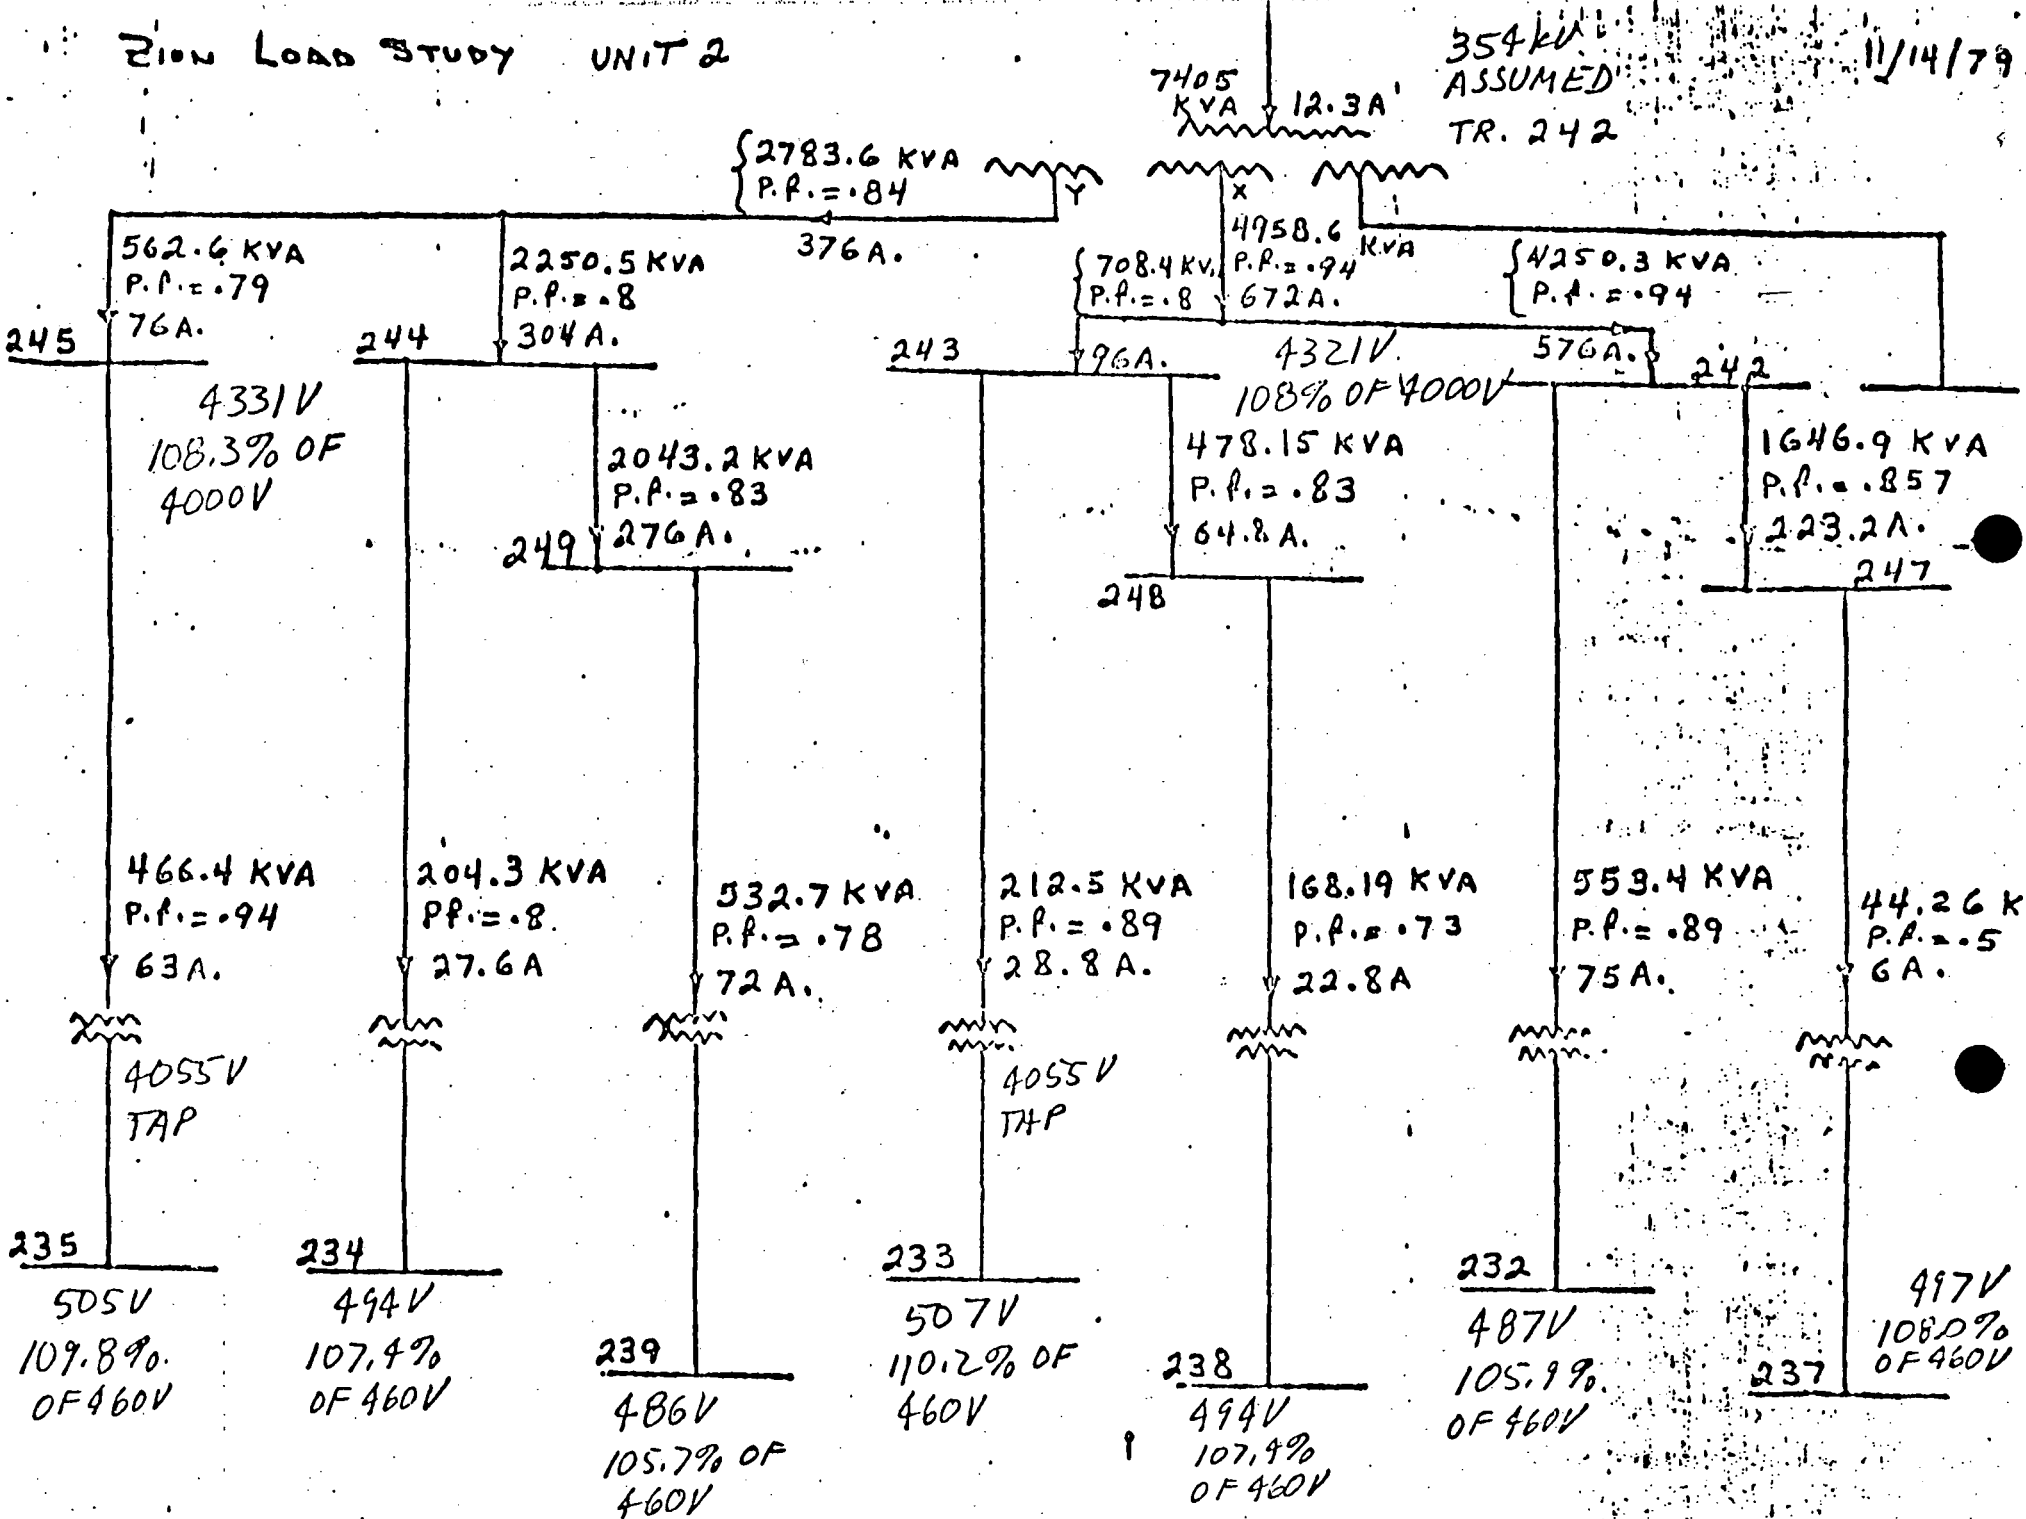 ZION LOAD STUDY UNIT 2
354kV
ASSUMED
TR. 242
11/14/79
7405
KVA
12.3A
2783.6 KVA
P.f.=.84
Y
376A.
X
4958.6
KVA
P.f.=.94
672A.
708.4 KV
P.f.=.8
96A.
4250.3 KVA
P.f.=.94
576A.
562.6 KVA
P.f.=.79
76A.
245
2250.5 KVA
P.f.=.8
304A.
244
243
242
4331V
108.3% OF
4000V
4321V
108% OF 4000V
2043.2 KVA
P.f.=.83
276A.
249
478.15 KVA
P.f.=.83
64.8A.
248
1646.9 KVA
P.f.=.857
223.2A.
247
466.4 KVA
P.f.=.94
63A.
204.3 KVA
Pf.=.8
27.6A
532.7 KVA
P.f.=.78
72A.
212.5 KVA
P.f.=.89
28.8A.
168.19 KVA
P.f.=.73
22.8A
553.4 KVA
P.f.=.89
75A.
44.26 K
P.f.=.5
6A.
4055V
TAP
4055V
TAP
235
505V
109.8%
OF 460V
234
494V
107.4%
OF 460V
239
486V
105.7% OF
460V
233
507V
110.2% OF
460V
238
494V
107.4%
OF 460V
232
487V
105.9%
OF 460V
497V
108.0%
OF 460V
237